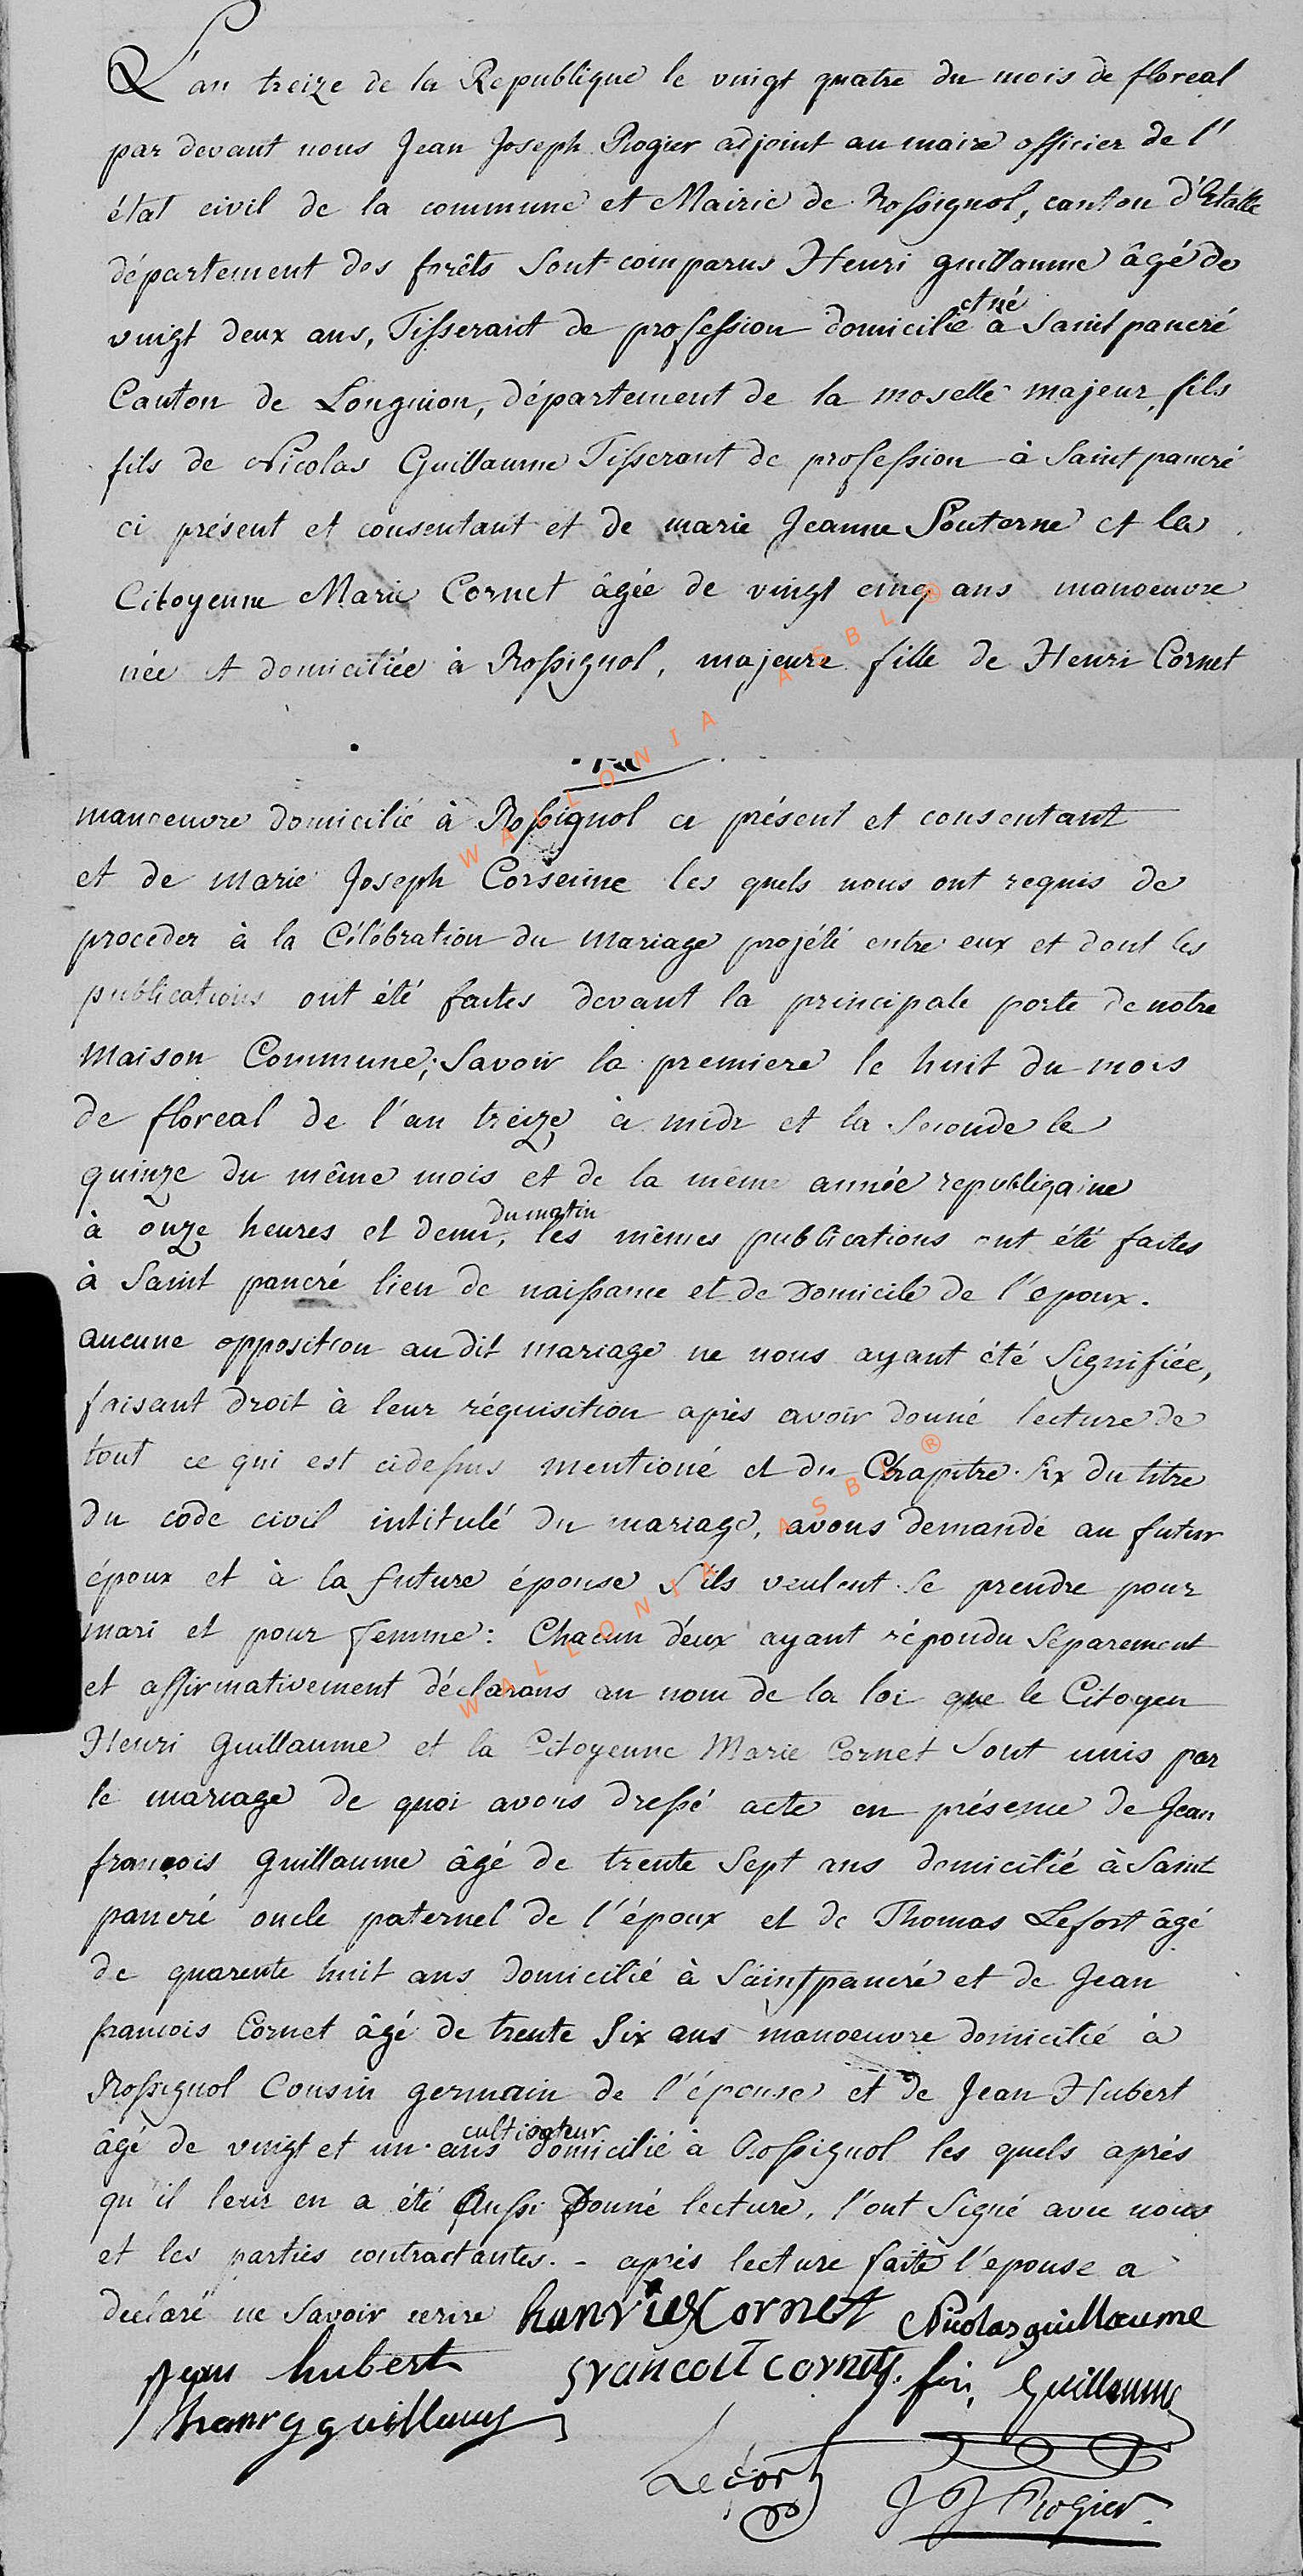 L'an treize de la Republique le vingt quatre du mois de floreal
par devant nous Jean Joseph Rogier adjoint au maire officier de l'
état civil de la commune et Mairie de Rossignol, canton d'Etalle
département des forêts sont comparus Henri guillaume âgé de
vingt deux ans, Tisserant de profession domicilié et né à Saint pancré
Canton de Longuion, département de la moselle majeur, fils
fils de Nicolas Guillaume Tisserant de profession à Saint pancré
ci présent et consentant et de marie Jeanne Pouterne et la
Citoyenne Marie Cornet âgée de vingt cinq ans manoeuvre
née et domiciliée à Rossignol, majeure fille de Henri Cornet
manoeuvre domicilié à Rossignol ci présent et consentant
et de marie Joseph Corseinne les quels nous ont requis de
proceder à la Célébration du mariage projété entre eux et dont les
publications ont été faites devant la principale porte de notre
Maison Commune; Savoir la premiere le huit du mois
de floreal de l'an treize à midi et la seconde le
quinze du même mois et de la même année republiqaine
à onze heures et demi du matin, les mêmes publications ont été faites
à Saint pancré lieu de naissance et de Domicile de l'époux.
aucune opposition au dit mariage ne nous ayant été signifiée,
faisant droit à leur réquisition après avoir donné lecture de
tout ce qui est cidessus mentioné et du Chapitre six du titre
du code civil intitulé du mariage, avons demandé au futur
époux et à la future épouse s'ils veulent se prendre pour
mari et pour femme: Chacun d'eux ayant répondu séparement
et affirmativement déclarons au nom de la loi que le Citoyen
Henri Guillaume et la Citoyenne Marie Cornet sont unis par
le mariage de quoi avons dressé acte en présence de Jean
françois guillaume âgé de trente sept ans domicilié à Saint
pancré oncle paternel de l'époux et de Thomas Lefort âgé
de quarente huit ans domicilié à Saint pancré et de Jean
francois Cornet âgé de trente six ans manoeuvre domicilié à
Rossignol Cousin germain de l'épouse et de Jean Hubert
âgé de vingt et un ans cultivateur domicilié à Rossignol les quels après
qu'il leur en a été Aussi Donné lecture, l'ont signé avec nous
et les parties contractantes. - après lecture faite l'epouse a
declaré ne savoir ecrire henri Cornet Nicolas guillaume
jean hubert francoit cornet fois, Guillaume
henry guillaume
Lefort J J Rogier
WALLONIA ASBL ®
WALLONIA ASBL ®